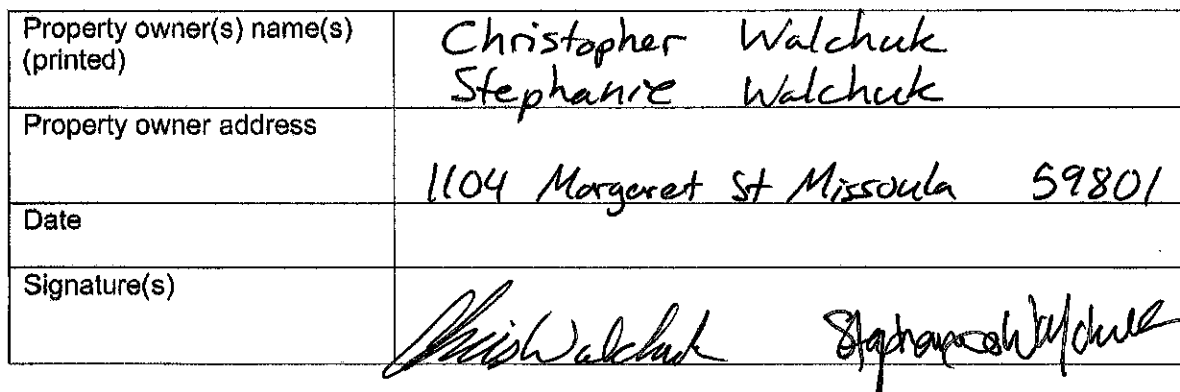 Property owner(s) name(s)
(printed)
Christopher Walchuk
Stephanie Walchuk
Property owner address
1104 Margaret St Missoula 59801
Date
Signature(s)
Chris Walchuk Stephanie Walchuk